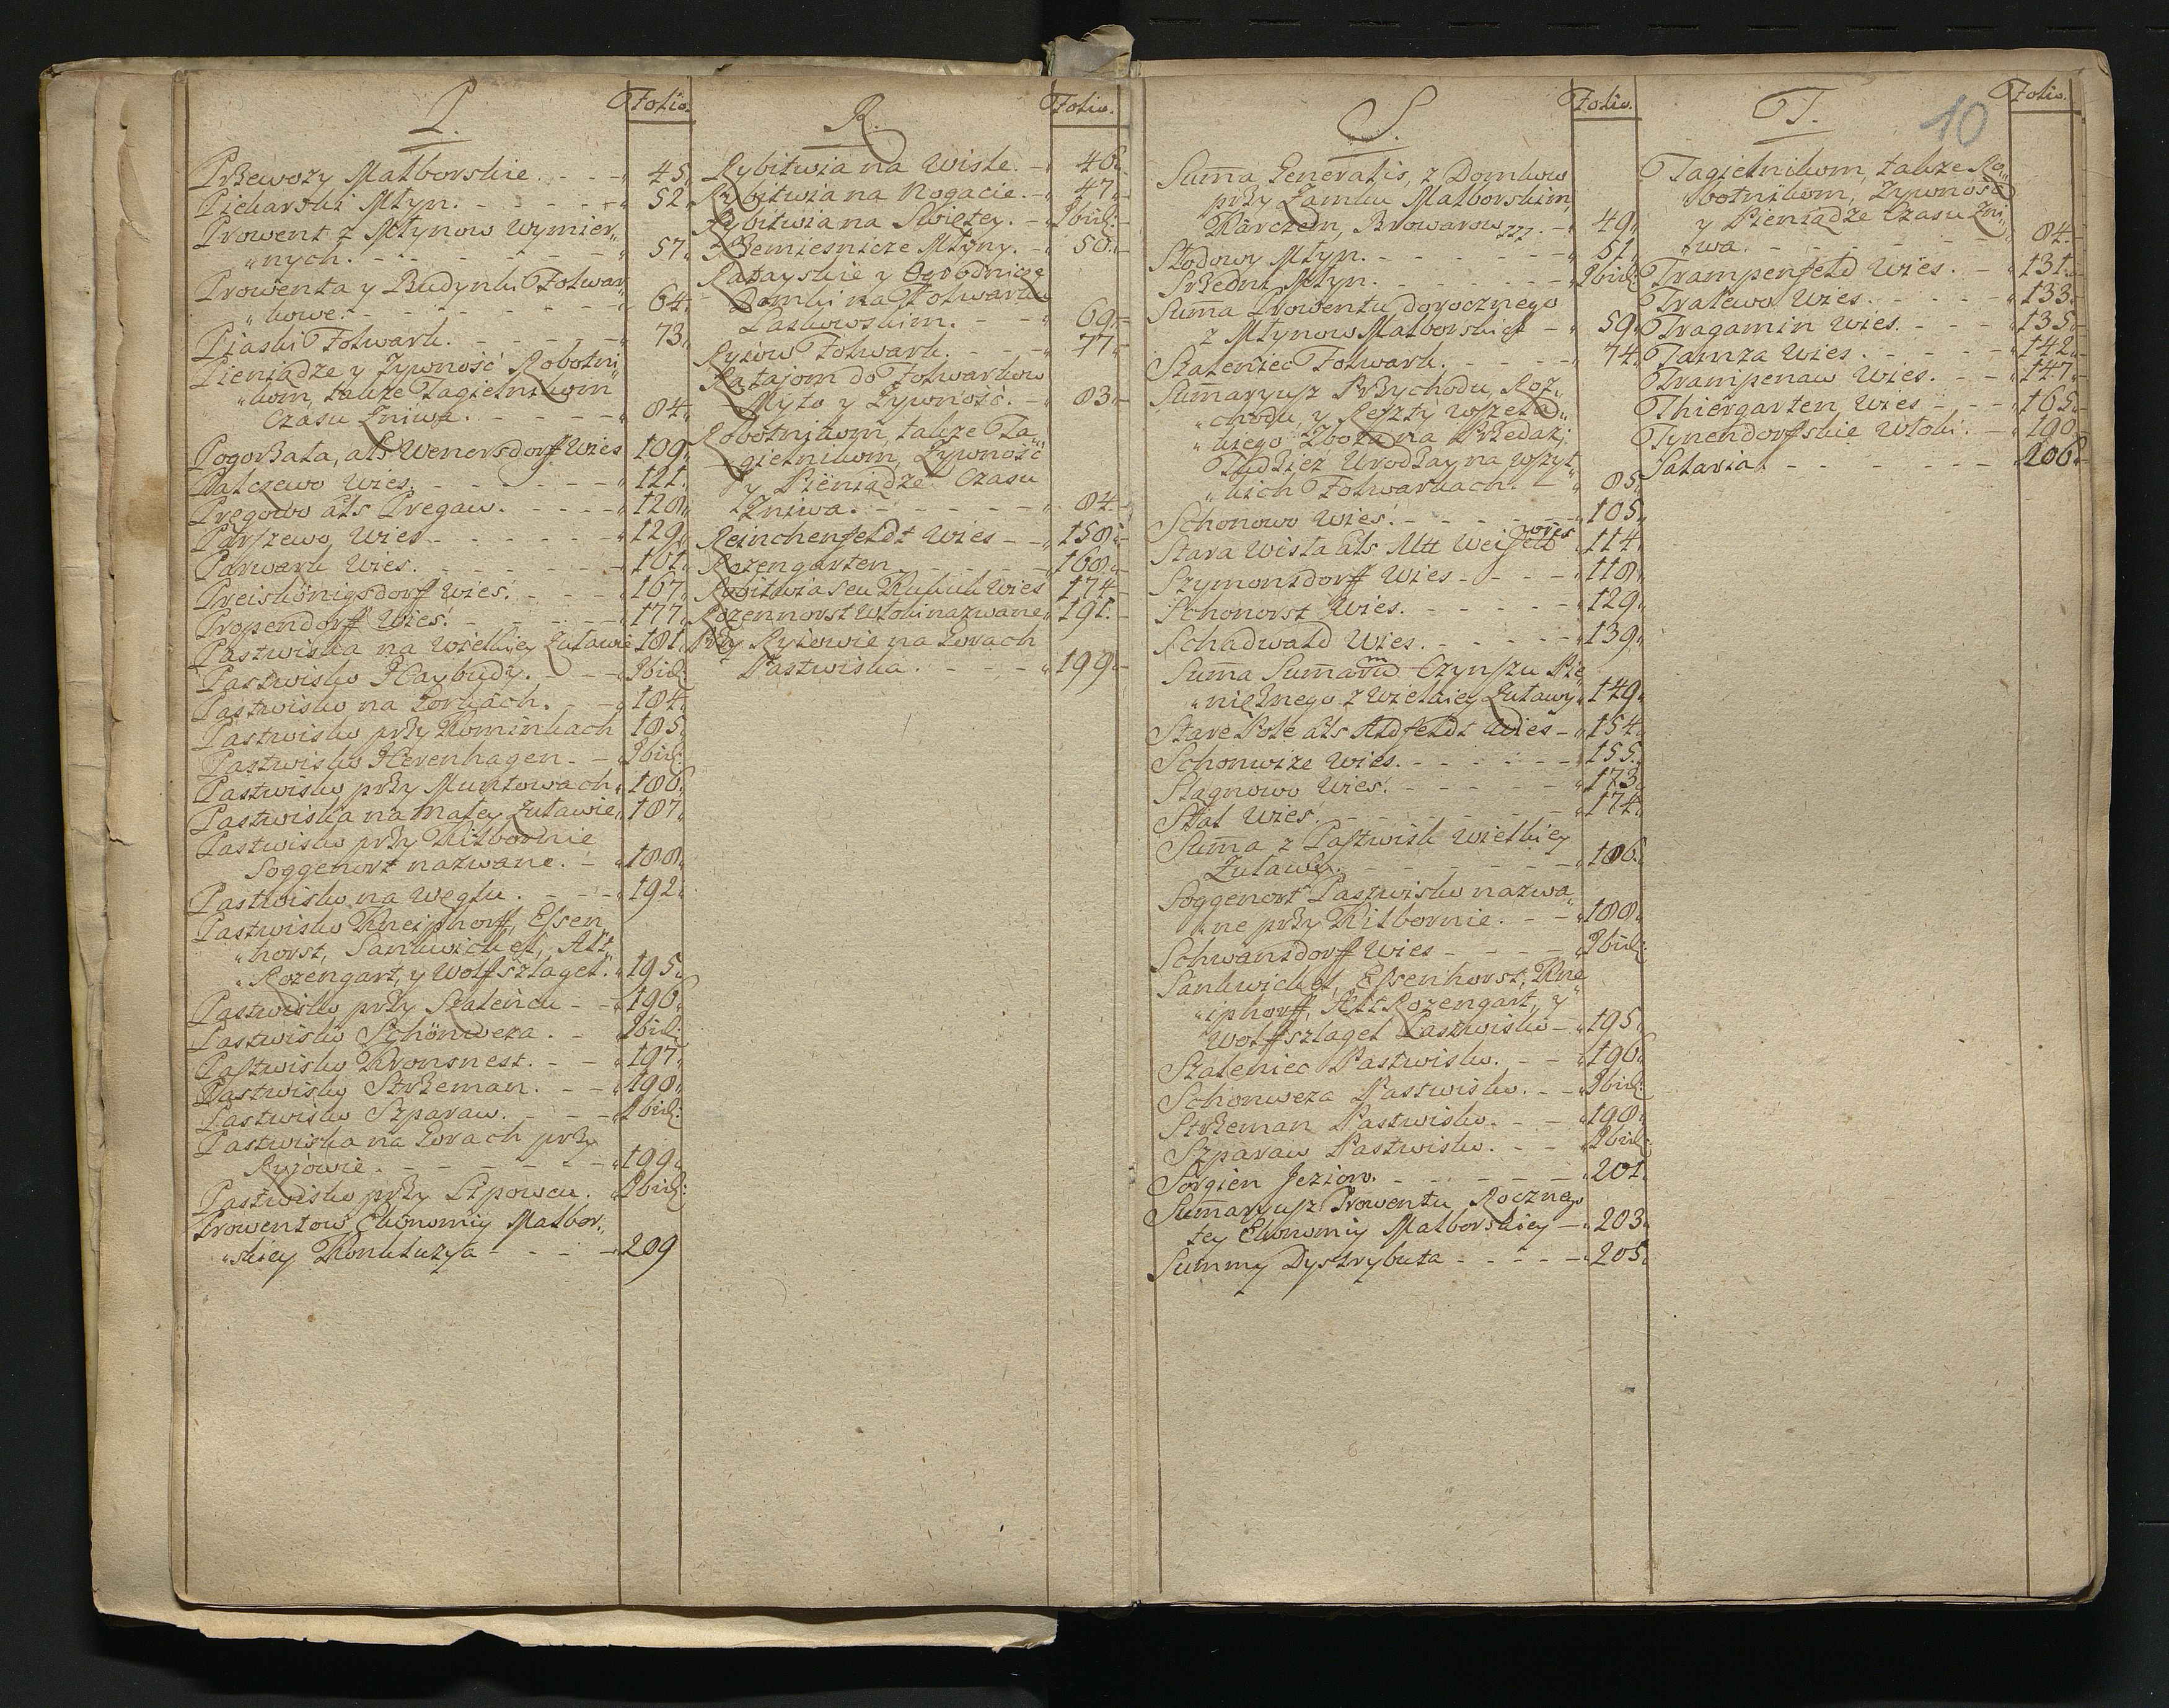 P. Folio.
Przewozy Malborskie. 45.
Piekarski Młyn. 52.
Prowent z Młynow Wymier
nych. 57.
Prowenta y Budynki Folwar
kowe. 64.
Piaski Folwark. 73.
Pieniądze y Zywność Robotni
kom, także Tagielnikom
Czasu Zniwa. 84.
Pogorzała, als Wenersdorff Wies 109.
Palczewo Wies. 121.
Pręgowo als Pregaw. 128.
Parszewo Wies 129.
Parwark Wies. 161.
Preiskönigsdorff Wies. 167.
Propendorff Wies. 177.
Pastwiska na Wielkiey Zuławie 181.
Pastwisko Haybudy. Ibid:
Pastwisko na Gorkach. 184.
Pastwisko przy Kominkach 185.
Pastwisko Herenhagen Ibid:
Pastwisko przy Muntowach 186.
Pastwiska na Małey Zuławie 187.
Pastwisko przy Kilbornie
Soggenort nazwane. 188.
Pastwisko na Węglu. 192.
Pastwisko Kneiphorff, Essen
horst, Sankwickel, Alt
Rozengart, y Wolfszlagel. 195.
Pastwisko przy Szaleńcu 196.
Pastwisko Schönweza. Ibid:
Pastwisko Kronsnest. 197.
Pastwisko Strzeman. 198.
Pastwisko Szparaw. Ibid:
Pastwiska na Gorach przy
Kyiowie. 199.
Pastwisko przy Lipowcu. Ibid:
Prowentow Ekonomiy Malbor
skiey Konkluzya 209
R. Folio.
Rybitwia na Wisle. 46.
Rybitwia na Nogacie. 47.
Rybitwia na Swiętey. Ibid:
Rzemiesnicze Młyny. 58.
Ratayskie y Ogrodnicze
Domki na Folwarku
Laskowskim. 69.
Kyiow Folwark. 77.
Ratajom do Folwarkow
Myto y Zywność. 83.
Robotnikom, także Ta
gielnikom, Zywność
y Pieniądze Czasu
Zniwa. 84.
Reinchenfeldt Wies 158.
Rozengarten 168.
Robitwia seu Kukuk Wies 174
Rozennorst Włoki nazwane 191.
Przy Kyiowie na Gorach
Pastwiska. 199.
S. Folio.
Suma Generalis, z Domkow
przy Zamku Malborskim,
Karczem, Browarow 49.
Słodowy Młyn. 51.
Srzedni Młyn. Ibid:
Suma Prowentu dorocznego
z Młynow Malborskich 59.
Szaleniec Folwark. 74.
Sumaryusz Przychodu, Roz
chodu, y Reszty wszela
kiego Zboża na Przedaż;
Tudziez Urodzay na wszyt
kich Folwarkach. 85.
Schonowo Wies. 105.
Stara Wisła als Alt Weissell Wies 114.
Szymonsdorff Wies 118.
Schonorst Wies. 129.
Schadwald Wies. 139.
Suma Sumarum Czynszu Pie
niężnego z Wielkiey Zuławy 149.
Stare Pole als Altfeldt Wies 154.
Schonwize Wies. 155.
Stagnowo Wies. 173.
Stal Wies. 174.
Suma z Pastwisk Wielkiey
Zuławy. 186.
Soggenort Pastwisko nazwa
ne przy Kilbornie. 188.
Schwansdorff Wies Ibid:
Sankwickel, Essenhorst, Kne
iphorff, Alt Rozengart, y
Wolfszlagel Pastwisko 195.
Szaleniec Pastwisko. 196.
Schonweza Pastwisko. Ibid:
Strzeman Pastwisko. 198.
Szparaw Pastwisko. Ibid:
Sorgien Jezioro. 201.
Sumaryusz Prowentu Rocznego
tey Ekonomiy Malborskiey 203.
Summy Dystrybuta 205.
T. 10 Folio.
Tagielnikom, także Ro
botnikom, Zywność
y Pieniądze Czasu Zni
wa. 84.
Trampenfeld Wies. 131.
Tralewo Wies. 133.
Tragamin Wies. 135.
Tamza Wies. 142.
Trampenaw Wies. 147.
Thiergarten Wies 165.
Tynendorfskie Włoki. 190.
Salaria. 206.